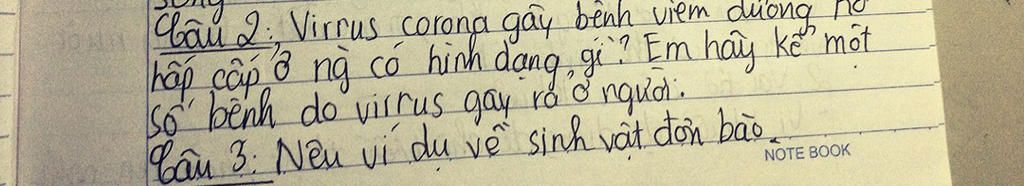 Câu 2: Virrus corona gây bệnh viêm đường hô
hấp cấp ở ng có hình dạng gì? Em hãy kể một
số bệnh do virrus gây ra ở người.
Câu 3: Nêu ví dụ về sinh vật đơn bào.
NOTE BOOK